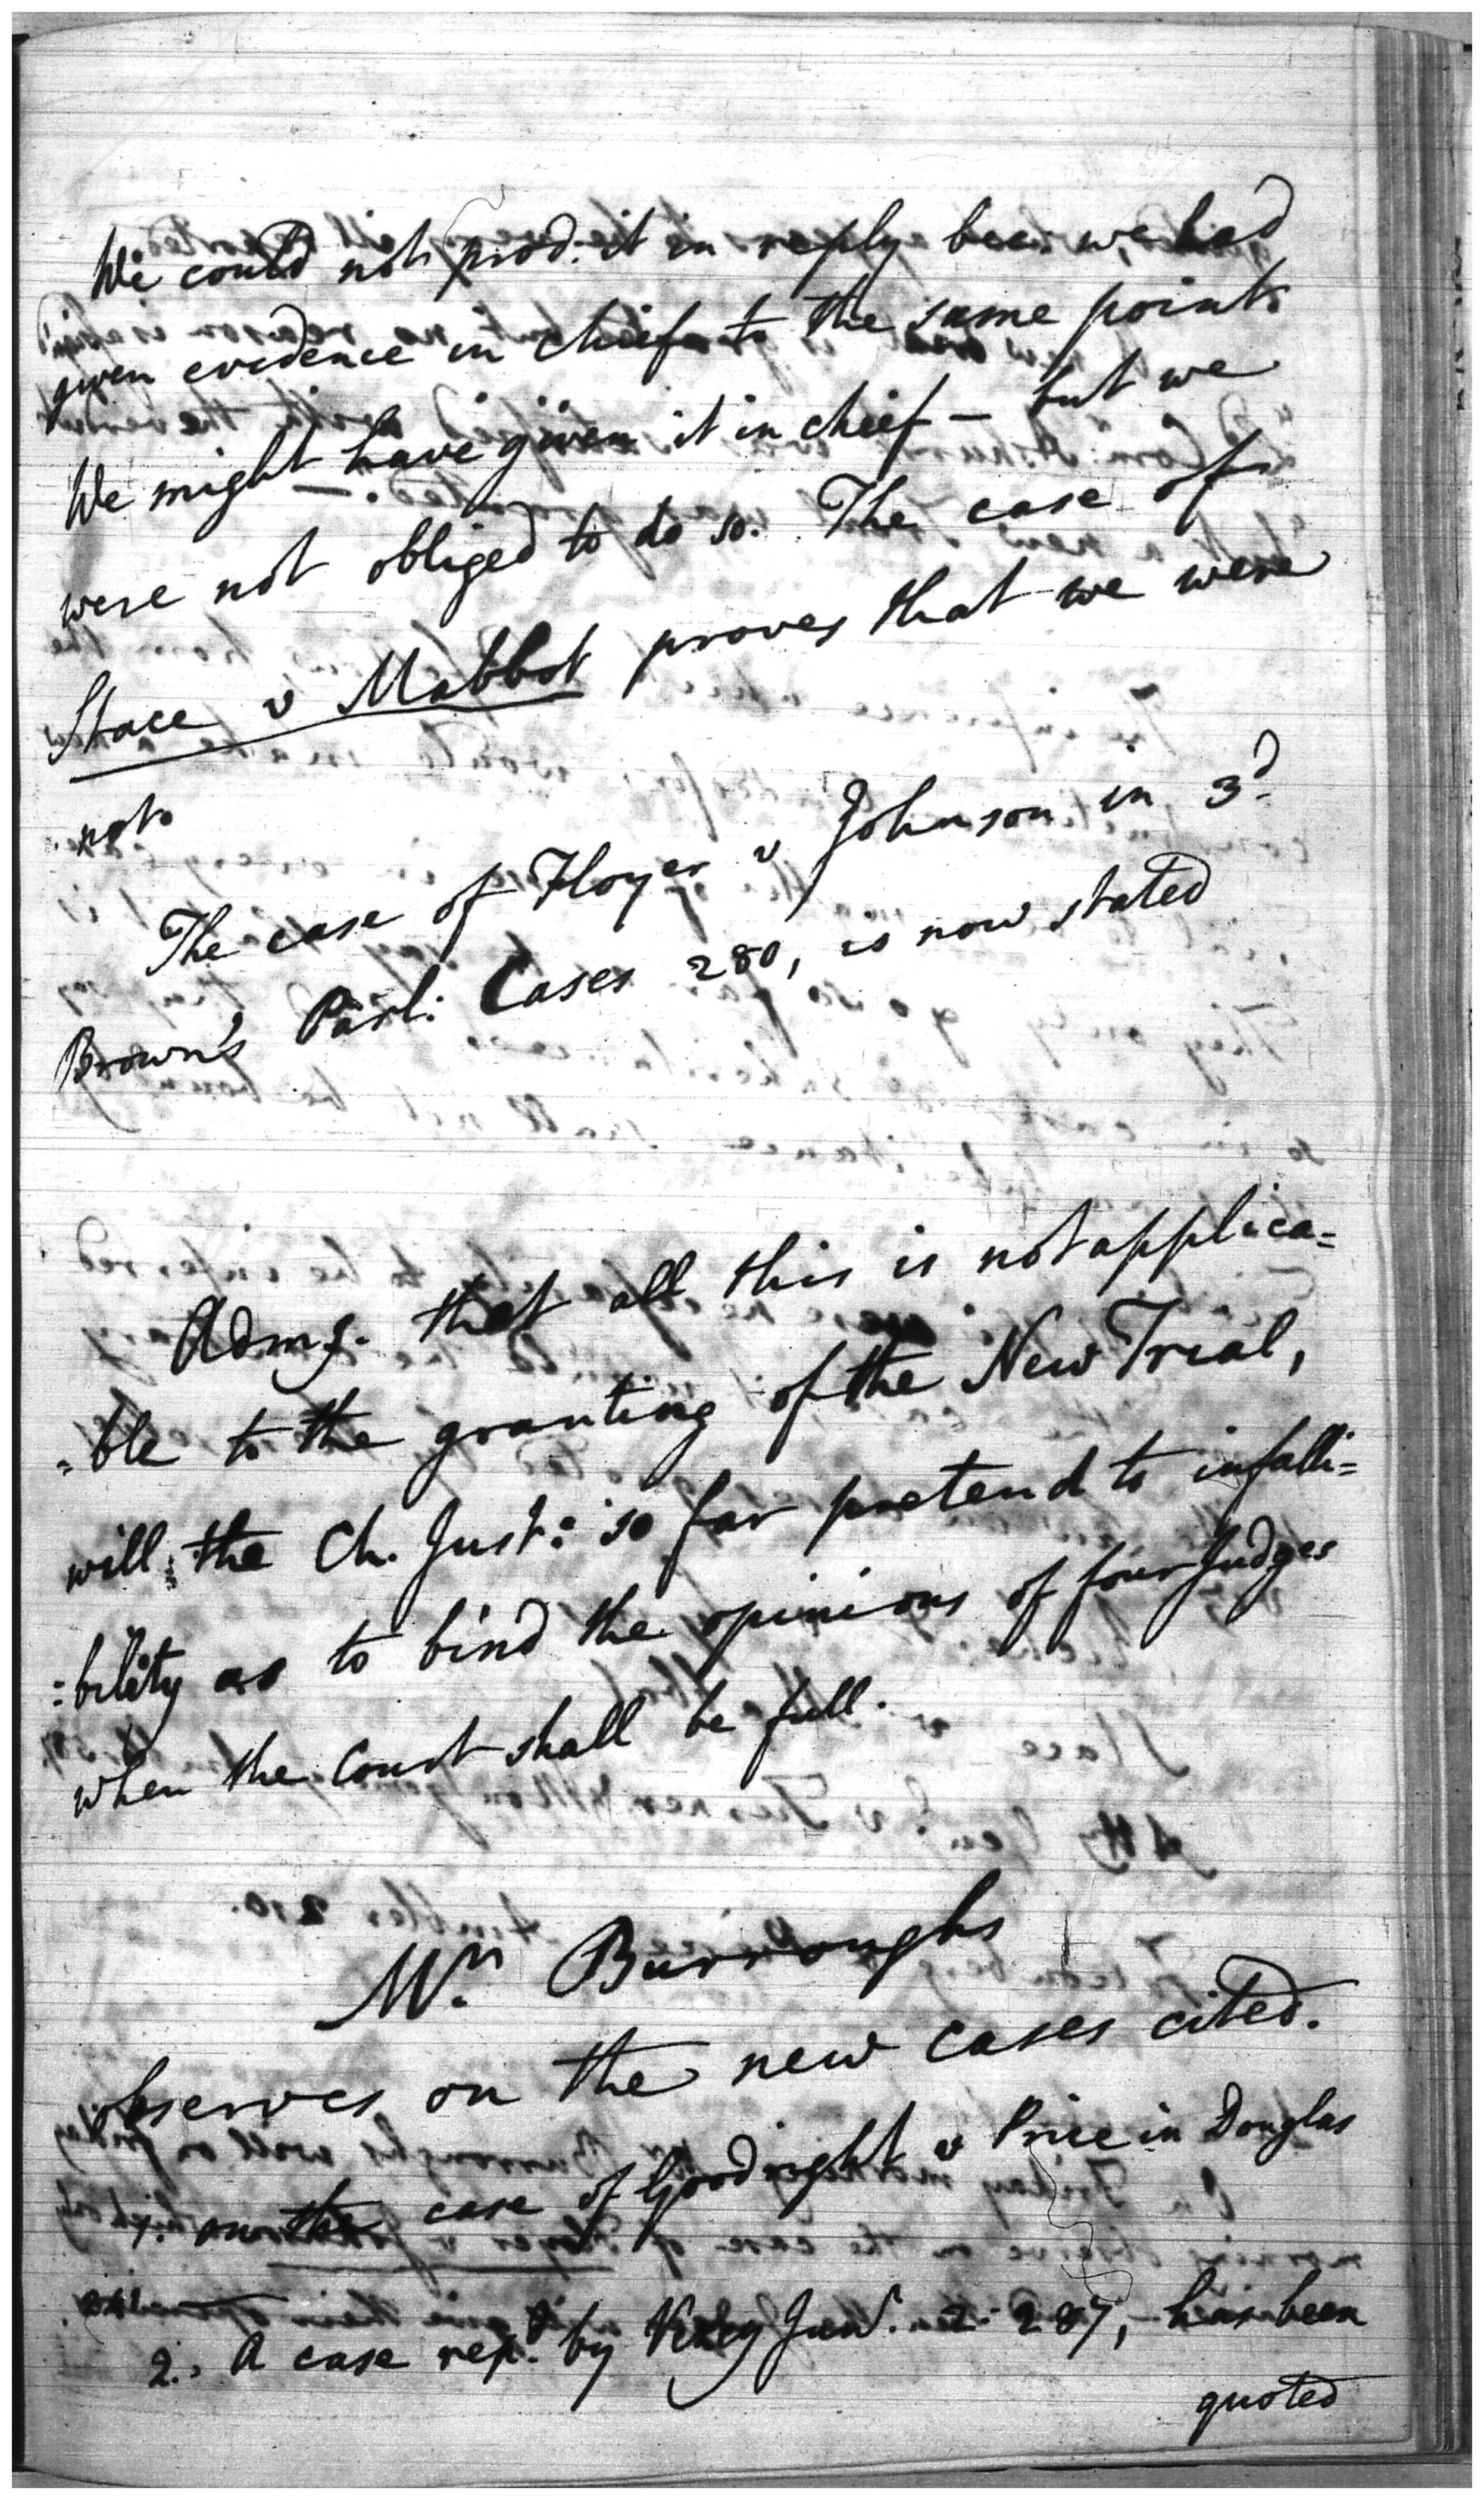 We could not prod: it in reply becs. we had
given evidence in chief to the same point
We might have given it in chief — but we
were not obliged to do so. The case of
Stace v Mabbot proves that we were
not.
The case of Floyer v Johnson in 3d.
Brown's Parl: Cases 280, is now stated
Admg. that all this is not applica=
=ble to the granting of the New Trial,
will the Ch. Just: so far pretend to infalli=
=bility as to bind the opinions of four Judges
when the Court shall be full.
Mr. Burroughs
observes on the new cases cited.
1. on the case of Goodright v Price in Douglas
2. A case rep.d by 2. 287, has been
quoted